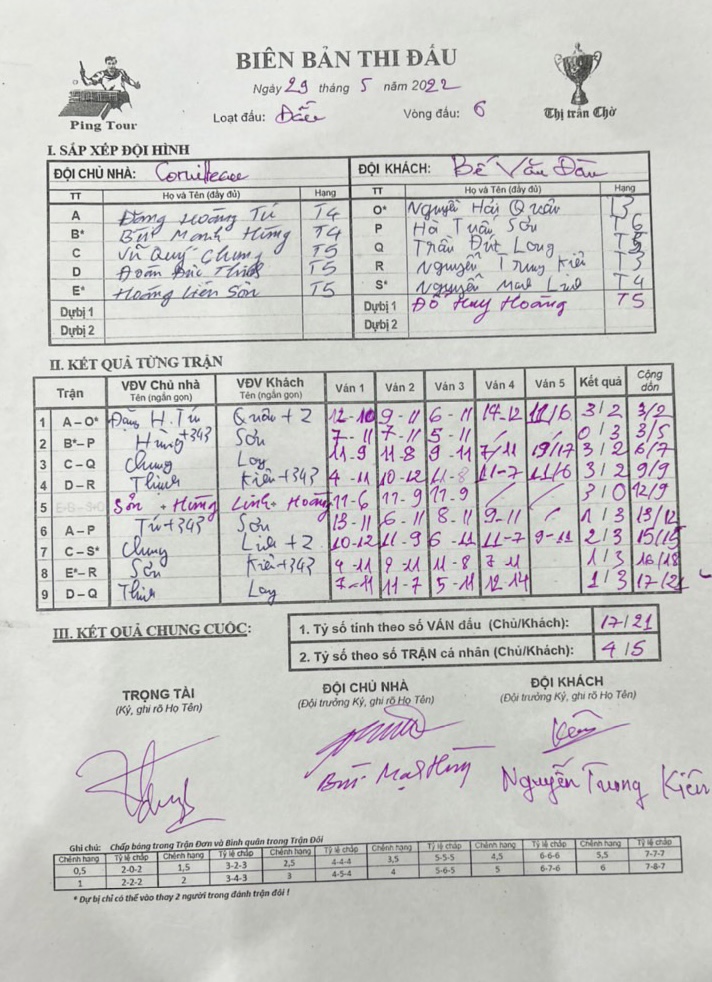 BIÊN BẢN THI ĐẤU
Ping Tour
Ngày 29 tháng 5 năm 2022
Loạt đấu: Vòng đấu: 6
Thị trấn Chờ
I. SẮP XẾP ĐỘI HÌNH
ĐỘI CHỦ NHÀ: ĐỘI KHÁCH: Bế Văn Đàn
TT Họ và Tên (đầy đủ) Hạng TT Họ và Tên (đầy đủ) Hạng
A Đặng Hoàng Tú T4 O* Nguyễn Hải Quân T3
B* Bùi Mạnh Hùng T4 P Hà Tuấn Sơn T6
C Vũ Quý Chung T5 Q Trần Đức Long
D Đoàn Đức Thịnh T5 R Nguyễn Trung Kiên T3
E* Hoàng Liên Sơn T5 S* Nguyễn Linh T4
Dựbị 1 Dựbị 1 Đỗ Huy Hoàng T5
Dựbị 2 Dựbị 2
II. KẾT QUẢ TỪNG TRẬN
Trận VĐV Chủ nhà VĐV Khách Ván 1 Ván 2 Ván 3 Ván 4 Ván 5 Kết quả Cộng dồn
Tên (ngắn gọn) Tên (ngắn gọn)
1 A – O* Đặng H. Tú Quân +2 12-10 9-11 6-11 14-12 11/6 3/2 3/2
2 B*– P Hùng +343 Sơn 7-11 7-11 5-11 0/3 3/5
3 C – Q Chung Long 11-9 11-8 9-11 7/11 19/17 3/2 6/7
4 D – R Thịnh Kiên +343 4-11 10-12 11-8 11-7 11/6 3/2 9/9
5 Sơn + Hùng Linh + Hoàng 11-6 11-9 11-9 3/0 12/9
6 A – P Tú +343 Sơn 13-11 6-11 8-11 9-11 1/3 13/12
7 C – S* Chung Linh +2 10-12 11-9 6-11 11-7 9-11 2/3 15/15
8 E*– R Sơn Kiên +343 9-11 9-11 11-8 7-11 1/3 16/18
9 D – Q Thịnh Long 7-11 11-7 5-11 12-14 1/3 17/21
III. KẾT QUẢ CHUNG CUỘC:
1. Tỷ số tính theo số VÁN đấu (Chủ/Khách): 17/21
2. Tỷ số theo số TRẬN cá nhân (Chủ/Khách): 4/5
TRỌNG TÀI ĐỘI CHỦ NHÀ ĐỘI KHÁCH
(Ký, ghi rõ Họ Tên) (Đội trưởng Ký, ghi rõ Họ Tên) (Đội trưởng Ký, ghi rõ Họ Tên)
Bùi Mạnh Hùng Nguyễn Trung Kiên
Ghi chú: Chấp bóng trong Trận Đơn và Bình quân trong Trận Đôi
Chênh hạng Tỷ lệ chấp Chênh hạng Tỷ lệ chấp Chênh hạng Tỷ lệ chấp Chênh hạng Tỷ lệ chấp Chênh hạng Tỷ lệ chấp Chênh hạng Tỷ lệ chấp
0,5 2-0-2 1,5 3-2-3 2,5 4-4-4 3,5 5-5-5 4,5 6-6-6 5,5 7-7-7
1 2-2-2 2 3-4-3 3 4-5-4 4 5-6-5 5 6-7-6 6 7-8-7
* Dự bị chỉ có thể vào thay 2 người trong đánh trận đôi !